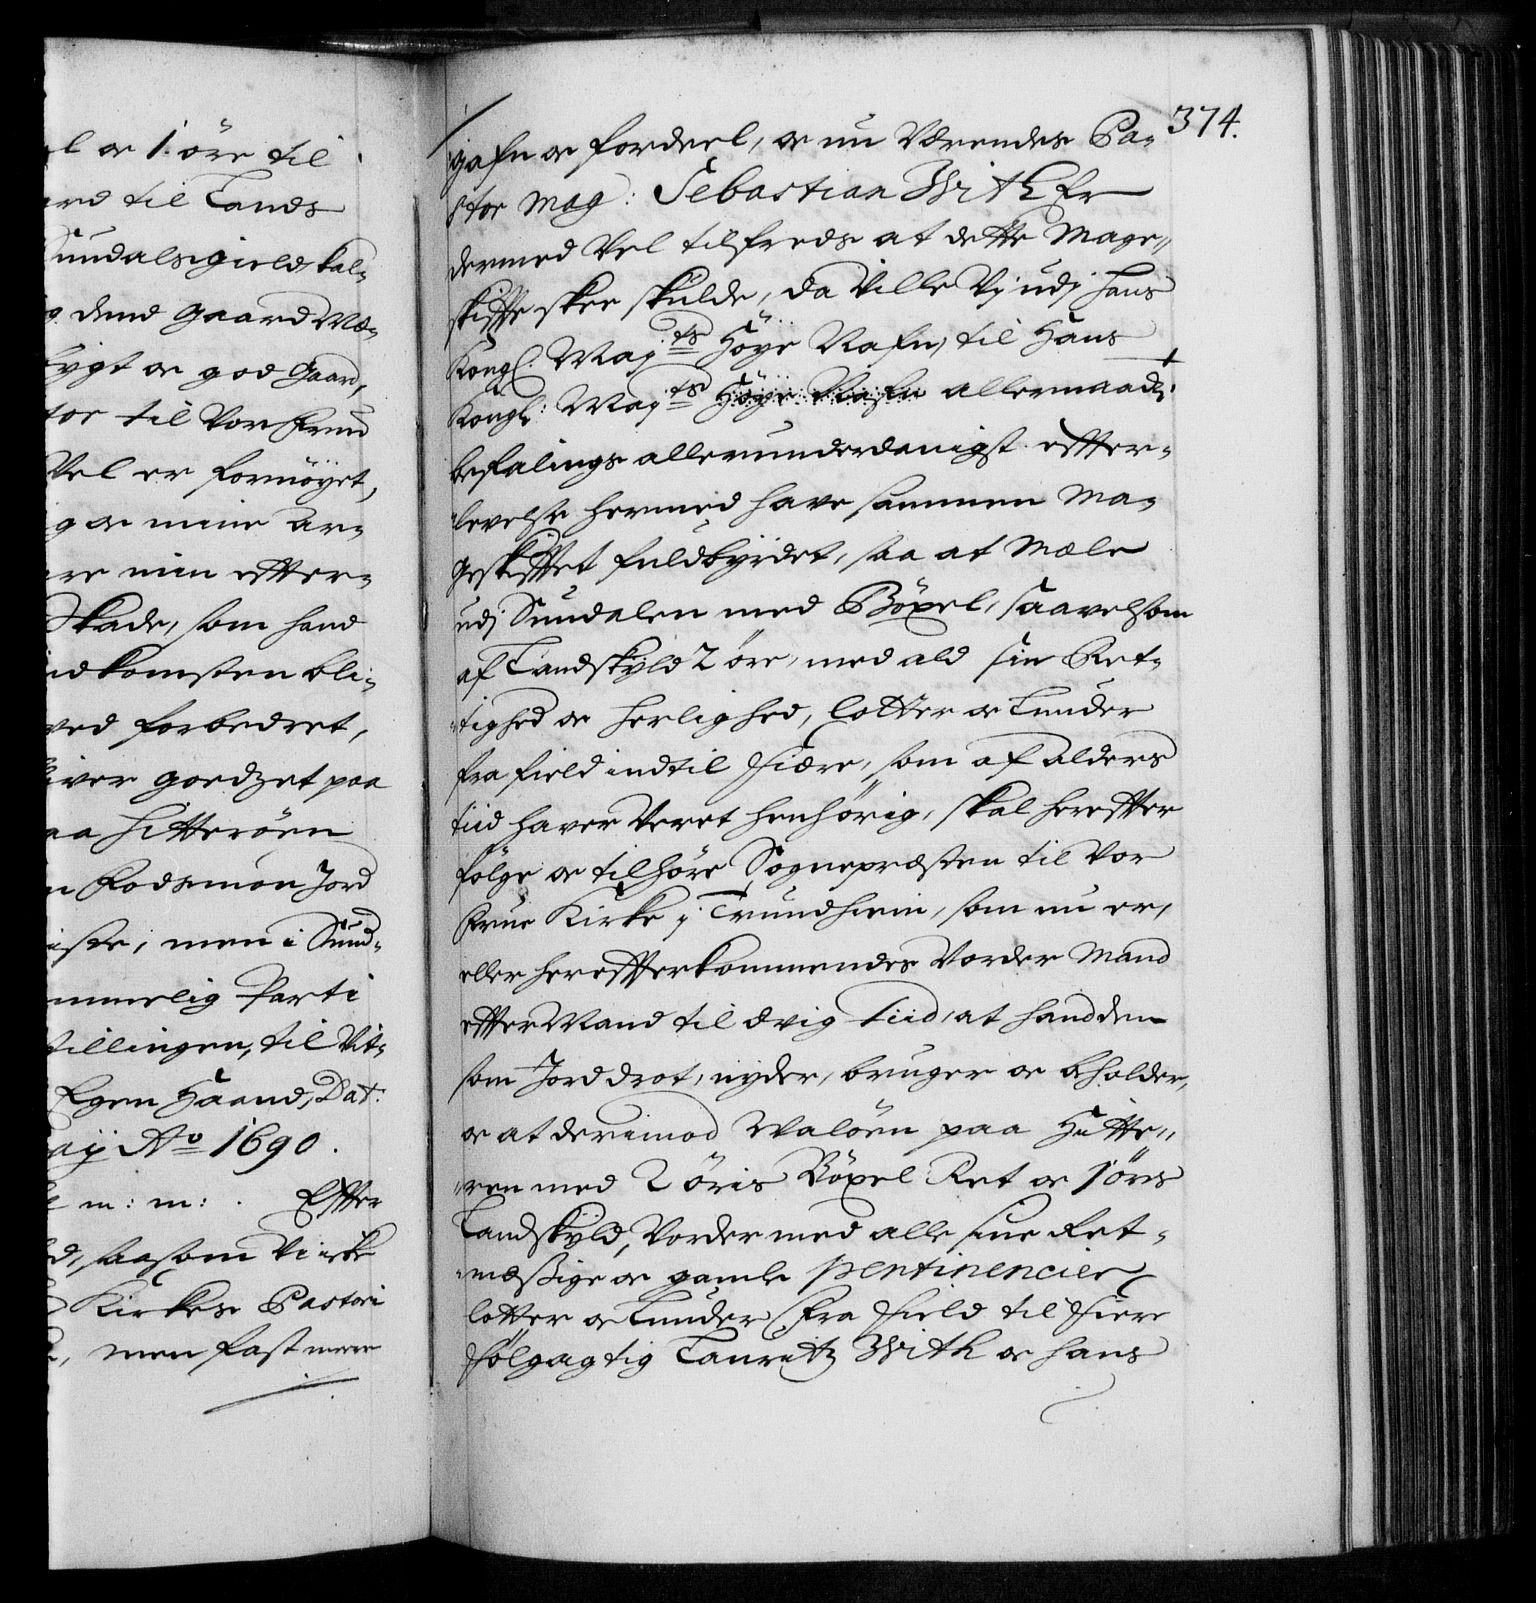 l oc 1. öre til
ard til Lands
Sundals gield kal-
dend Gaard Mæ-
bygt oc god Gaard,
tor til Vor Frue
Vel er fornöyet,
g oc mine Ar-
re min effter-
Skade, som hand
indkomsten bli-
ved forbedret,
iver goedzet paa
aa Hitteröen
n Rodsmon Jord
iste, men i Sund-
mmelig Parti
stillingen, til Vit-
Egen Haand, Dat:
aij Ao 1690.
m: m: . Effter
d, saasom Vi icke
Kirkes Pastori
, men fast meere
374.
gafn oc fordeel, oc nu Værendes Pa-
stor Mag: Sebastian With Er
dermed Vel tilfreds at dette Mage-
skiffte skee skulde, da Ville Vj udj Hans
Kongl. Mayts Höye Nafn, til Hans
Kongl: Mayts Höye Nafn allernaadigst
befalings allerunderdanigst effter-
levelse hermed have sammen Ma-
geskifftet fuldbyrdet, saa at Mæle
udj Sundalen med Böxel, saavelsom
af Landskyld 2 öre, med ald sin Ret-
tighed oc herlighed, lotter oc Lunder
fra field indtil fiære, som af alders
tiid haver Veret henhörig, skal hereffter
fölge oc tilhöre Sognepræsten til Vor
Frue Kirke j Trundhiem, som nu er,
eller hereffterkommendes Vorder Mand
effter Mand til ævig tiid, at hand den
som Jorddrot, nyder, bruger oc beholder,
oc at derimod Walöen paa Hitte-
ren med 2 öris Böxel Ret oc 1 öris
Landskyld, Vorder med alle sine Ret-
mæssige oc gamle pentinencier
lotter oc Lunder fra Field til Fiere
Fölgagtig Lauritz With oc hans